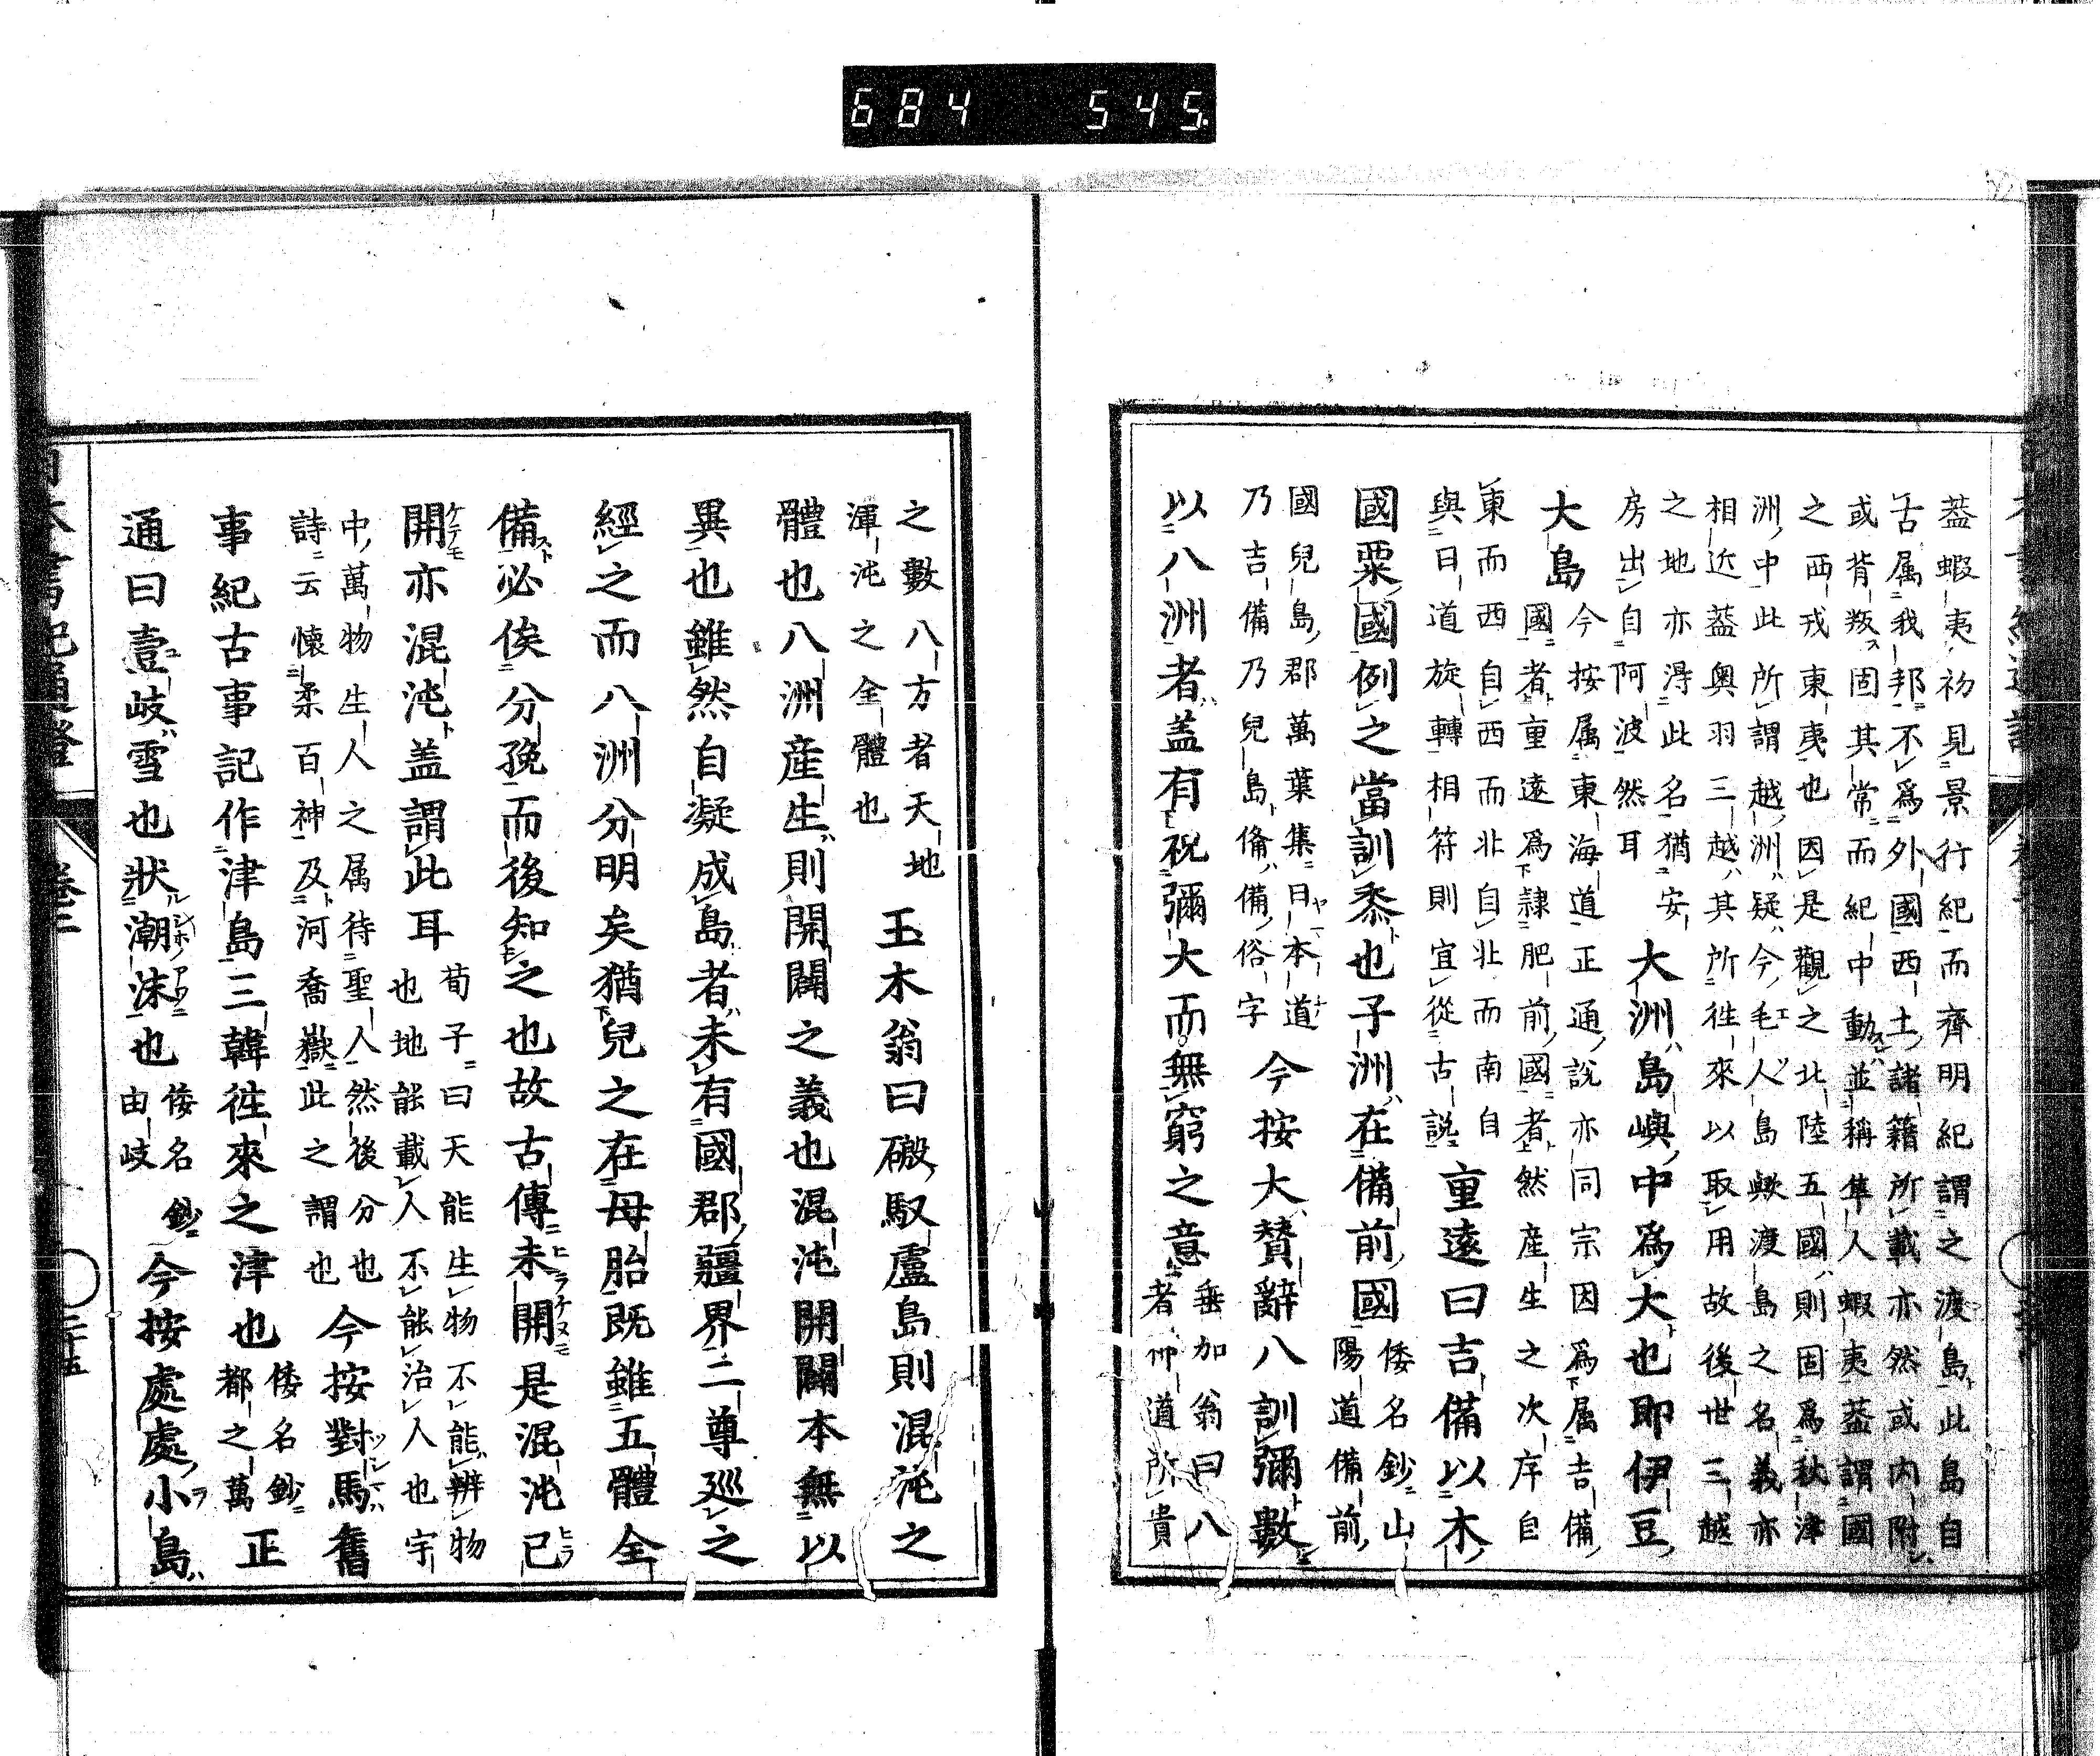 684 545.
葢蝦夷初見景行紀而齊明紀謂之渡島此島自
古属我邦不爲外國西土諸籍所載亦然或内附
或背叛固其常而紀中動並稱隼人蝦夷葢謂國
之西戎東夷也因是觀之北陸五國則固爲秋津
洲中此所謂越洲疑今毛人島歟渡島之名義亦
相近葢奥羽三越其所徃來以取用故後世三越
之地亦淂此名猶安
房出自阿波然耳
大洲島嶼中爲大也即伊豆
大島
今按属東海道正通説亦同宗因爲属吉備
國者重遠爲隷肥前國者然産生之次序自
東而西自西而北自北而南自
與日道旋轉相符則宜從古説
重遠曰吉備以木
國粟國例之當訓黍也子洲在備前國
倭名鈔山
陽道備前
國兒島郡萬葉集日本道
乃吉備乃兒島備備俗字
今按大贊辭八訓彌數
以八洲者盖有祝彌大而無窮之意
垂加翁曰八
者仲道所貴
之數八方者天地
渾沌之全體也
玉木翁曰磤馭盧島則混沌之
體也八洲産生則開闢之義也混沌開闢本無以
異也雖然自凝成島者未有國郡疆界二尊巡之
經之而八洲分明矣猶兒之在母胎既雖五體全
備必俟分㝃而後知之也故古傳未開是混沌已
開亦混沌盖謂此耳
荀子曰天能生物不能辨物
也地能載人不能治人也宇
中萬物生人之属待聖人然後分也
詩云懷柔百神及河喬嶽此之謂也
今按對馬舊
事紀古事記作津島三韓徃來之津也
倭名鈔
都之萬
正
通曰壹岐雪也狀潮沫也
倭名鈔
由岐
今按處處小島
日本書紀通證
卷三
二十五